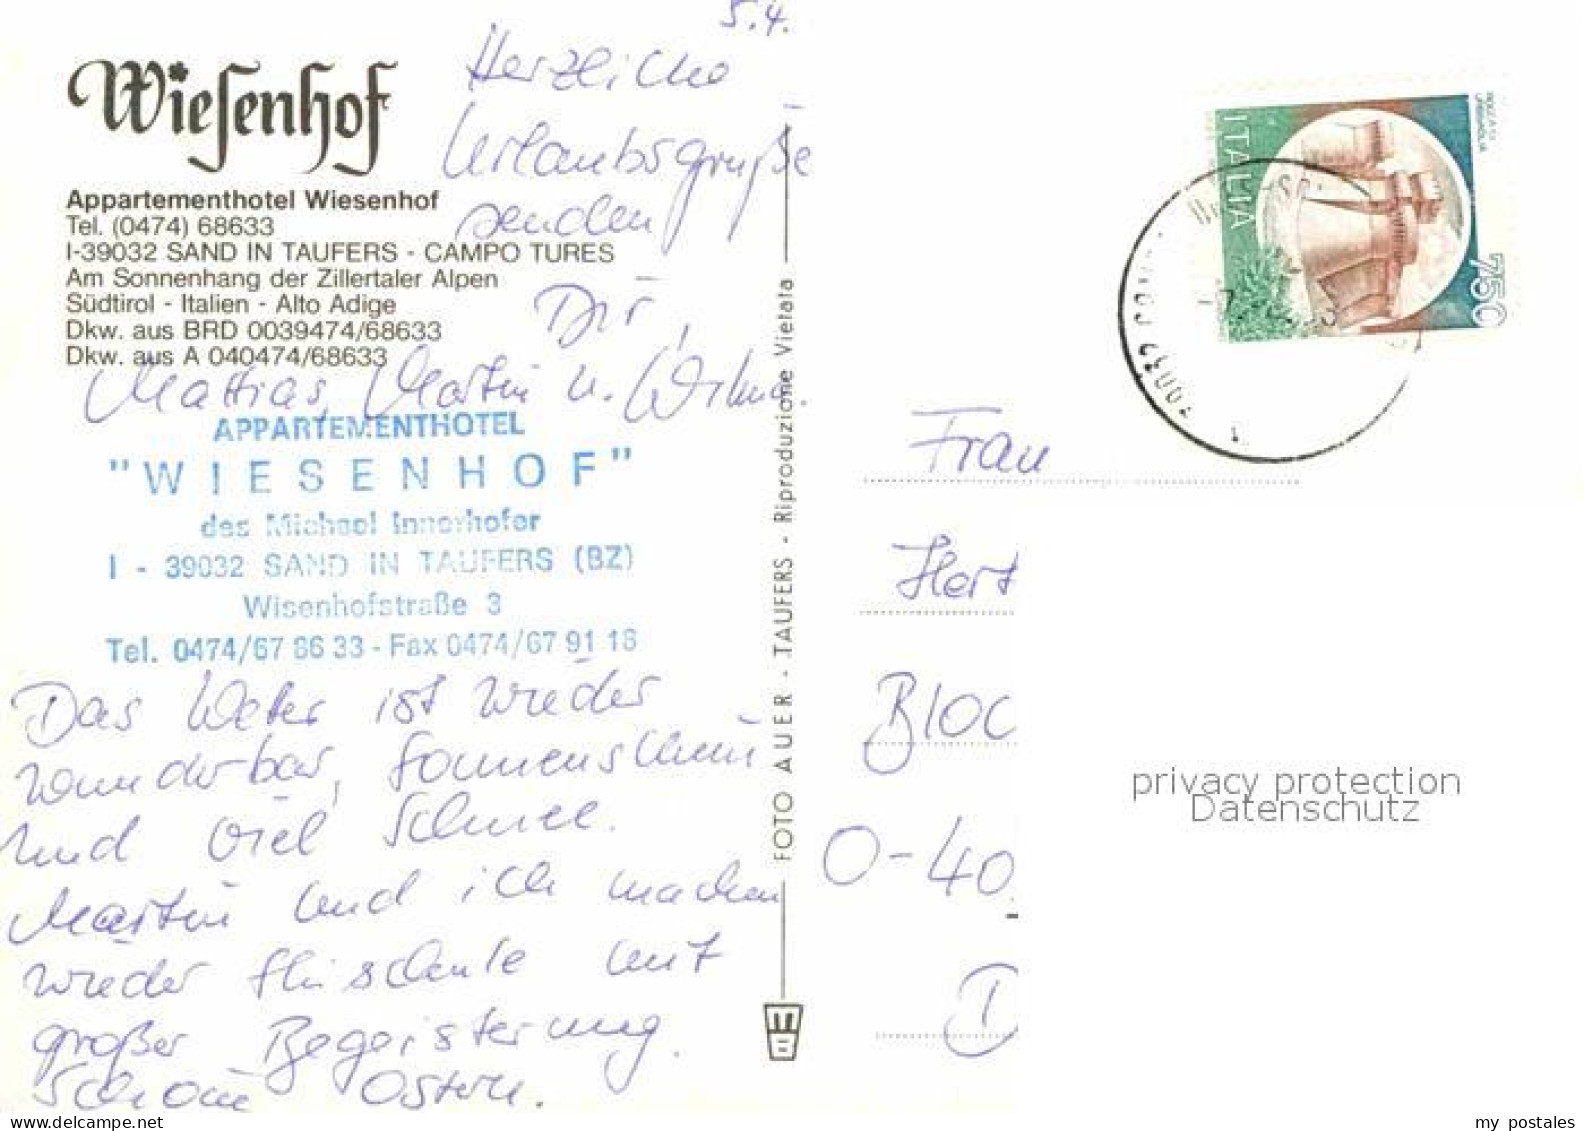 5.4.
Wiesenhof
Herzliche
Urlaubsgrüße
senden
Appartementhotel Wiesenhof
Tel. (0474) 68633
I-39032 SAND IN TAUFERS - CAMPO TURES
Am Sonnenhang der Zillertaler Alpen
Südtirol - Italien - Alto Adige
Dkw. aus BRD 0039474/68633
Dkw. aus A 040474/68633
Dir,
Mattias, Martin u. Wilma.
APPARTEMENTHOTEL
"WIESENHOF"
des Michael Innerhofer
I - 39032 SAND IN TAUFERS (BZ)
Wisenhofstraße 3
Tel. 0474/67 86 33 - Fax 0474/67 91 18
Das Wetter ist wieder
wunderbar, Sonnenschein
und viel Schnee.
Martin und ich machen
wieder Skischule mit
großer Begeisterung.
Schöne Ostern.
FOTO AUER - TAUFERS - Riproduzione Vietata
ITALIA
750
Frau
Hert
Bloc
O-40
D
privacy protection
Datenschutz
my postales